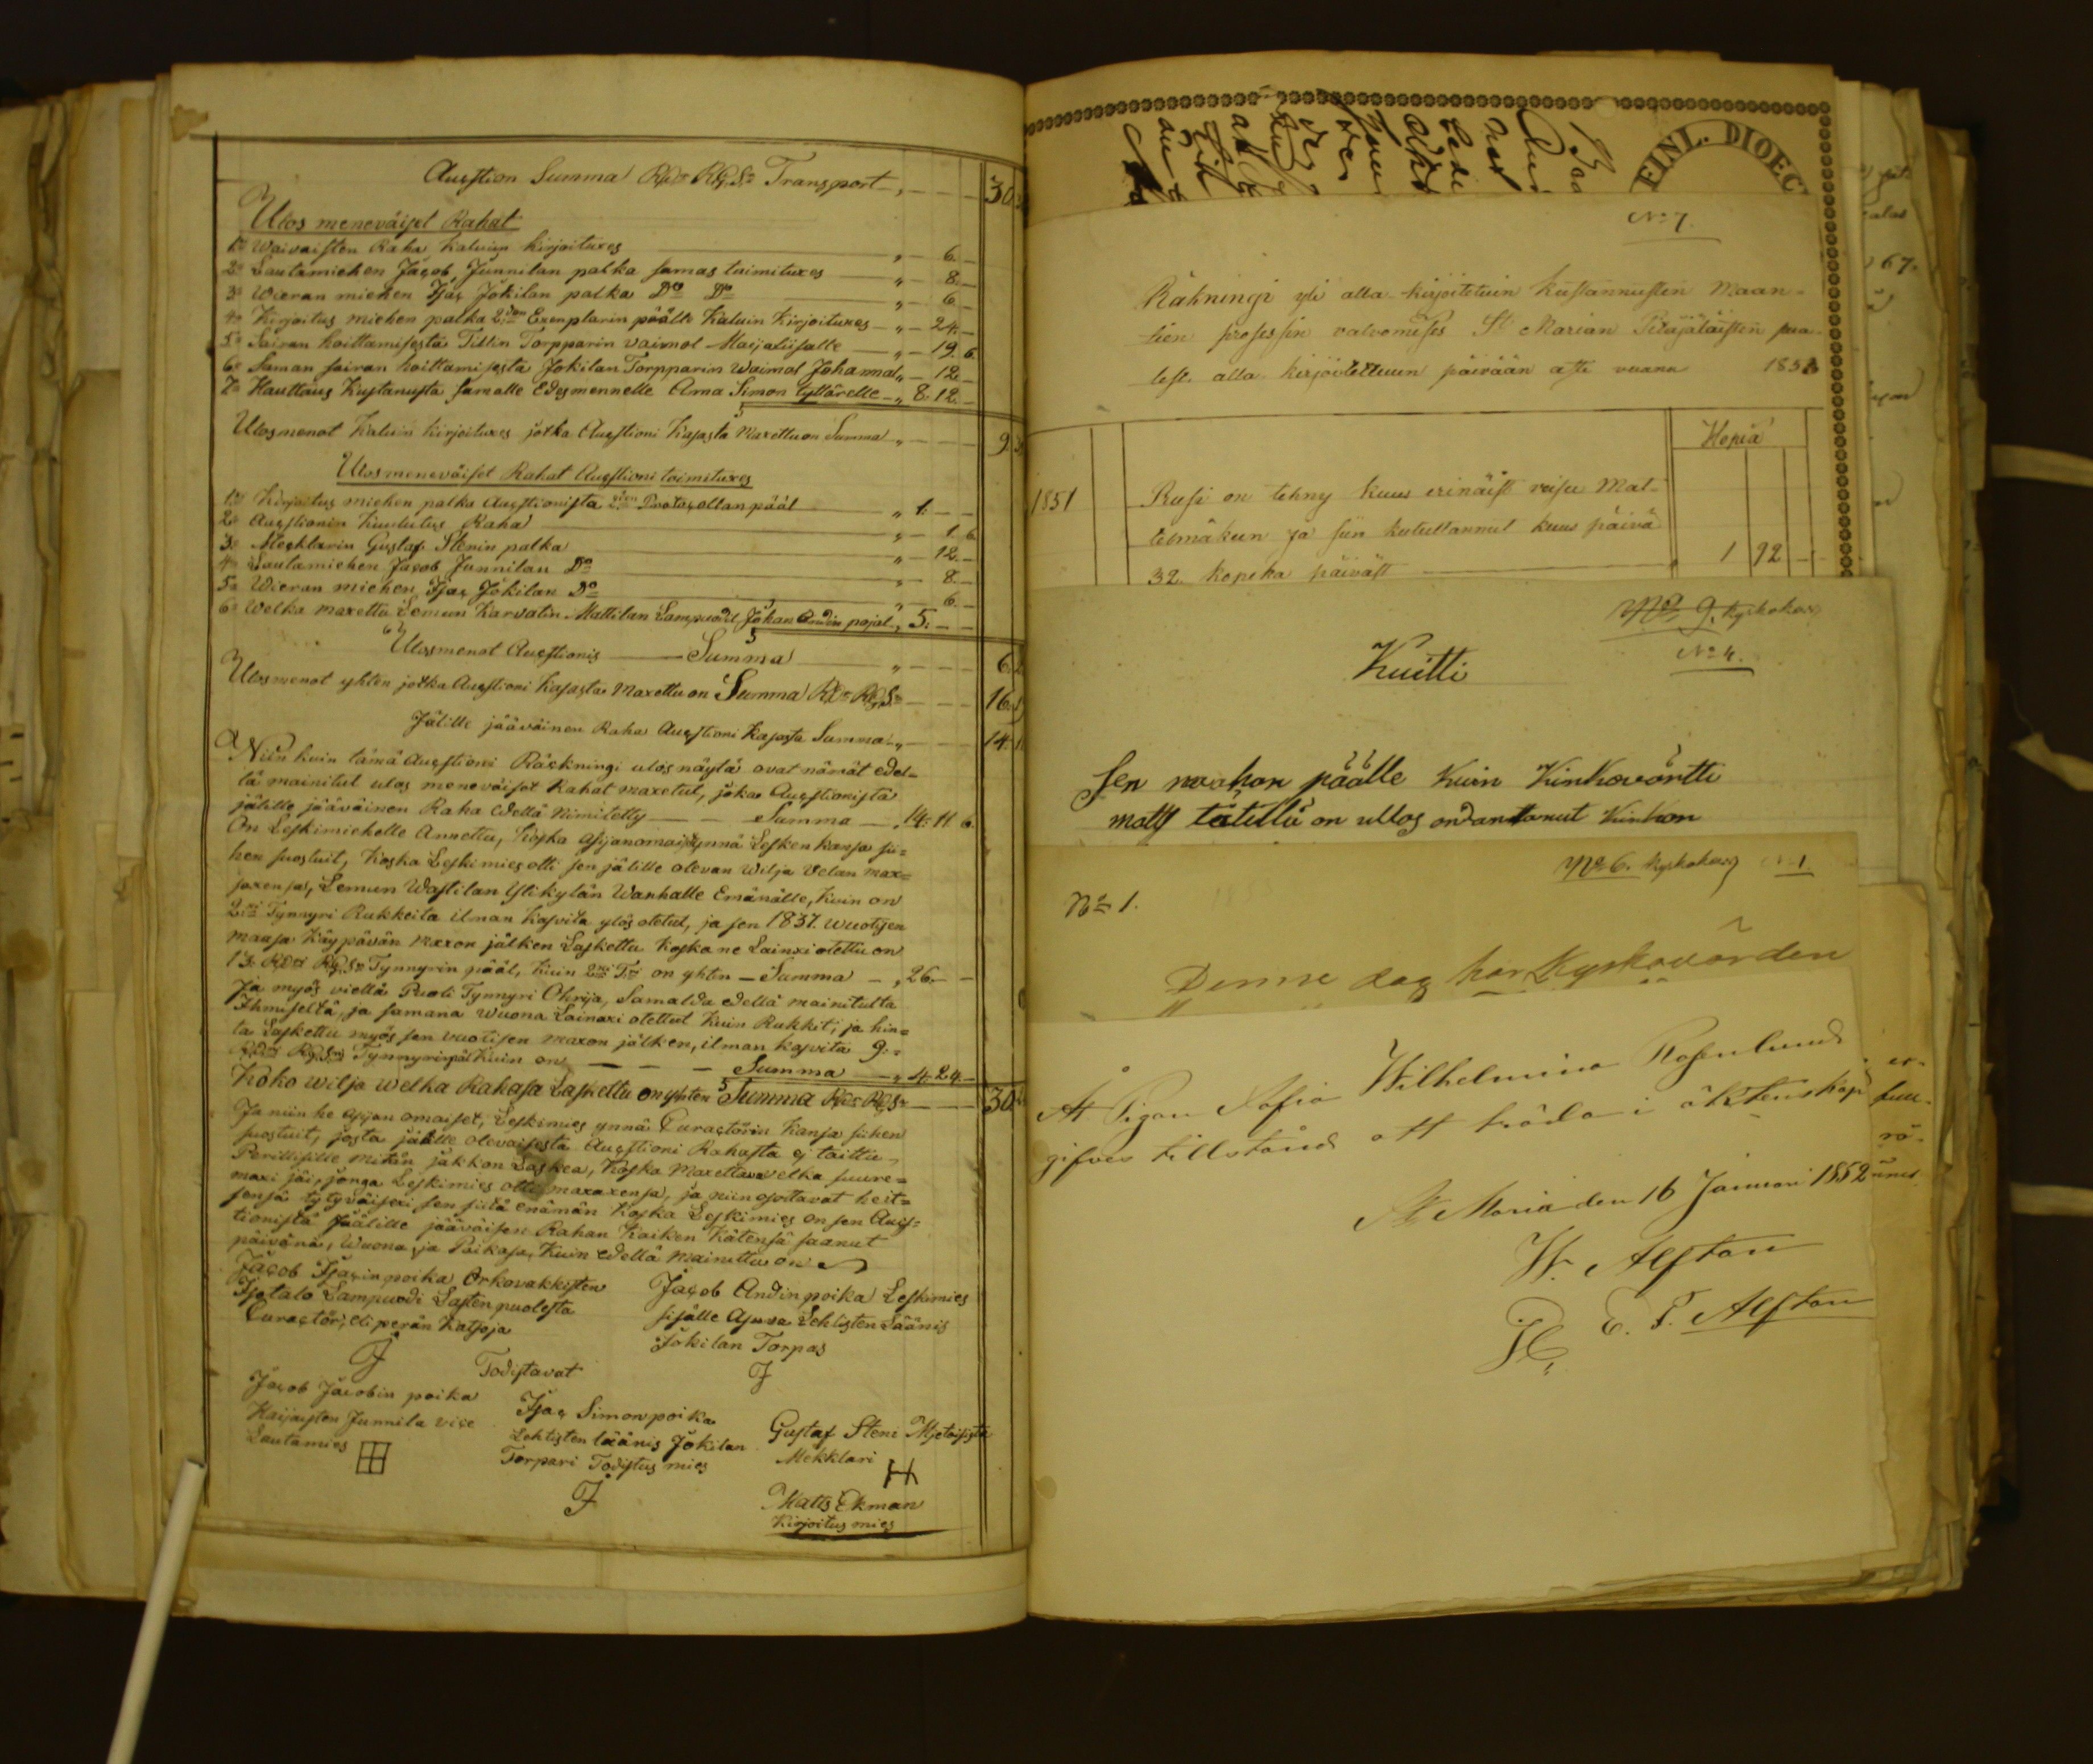 Auction Summa Rdr RGS: Transport „ — — 30
Ulos meneväiset Rahat
1o Waivaisten Raha Kaluin kirjoituxes „ — 6. —
2o Lautamiehen Jacob Junnilan palka samas toimituxes „ — 8. —
3o Wieran miehen Isac Jokilan palka Do Do „ — 6 —
4o Kirjoitus miehen palka 2:den Exemplarin päälle Kaluin Kirjoituxes „ — 24. —
5o Sairan hoittamisesta Tillin Torpparin vaimol Maijaliisalle „ — 19. 6.
6o Saman sairan hoittamisesta Jokilan Torpparin Waimol Johannal „ — 12. —
7o Hauttaus Kustanusta samalle Edesmennelle Anna Simon tyttärelle „ 8. 12. —
Ulosmenot Kaluin kirjoituxes jotka Auctioni Kassasta Maxettu on Summa „ — — 9.
Ulosmeneväiset Rahat Auctioni toimituxes
1o Kirjoitus miehen palka Auctionista 2:den Protocollan pääl „ 1. — —
2o Auctionin Kuulutus Raha „ — 1. 6
3o Mecklarin Gustaf Stenin palka „ — 12. —
4o Lautamiehen Jacob Junnilan Do „ — 8. —
5o Wieran miehen Isac Jokilan Do „ — 6. —
6o Welka maxettu Lemun Karvatin Mattilan Lampuodil Johan Andin pojal „ 5. — —
Ulosmenot Auctionis — Summa „ — — 6.
Ulosmenot yhten jotka Auctioni Kassasta Maxettu on Summa Rdr RGS: — — 16.
Jälille jääväinen Raha Auctioni Kassasta Summa „ — — 14.
Niin kuin tämä Auctioni Räckningi ulos näytä ovat nämät edel=
lä mainitut ulos meneväiset Rahat maxetut, joka Auctionista
jälille jääväinen Raha edellä Nimitetty — — Summa — „ 14. 11 6.
On Leskimiehelle Annettu, Koska asijanomaiset ynnä Lesken kansa sii=
hen suostuit, Koska Leskimies otti sen jälille olevan Wilja Velan max=
saxensas, Lemun Wastilan Ylikylän Wanhalle Emänälle, Kuin on
2:xi Tynnyri Rukkeita ilman kasvita ylös otetut, ja sen 1837. wuotisen
maasa Käypävän maxon jälken Laskettu Koska ne Lainaxi otettu on
13. Rdri RGS: Tynnyrin pääl, Kuin 2:xi T:ri on yhten — Summa — „ 26. —
Ja myös viellä Puoli Tynnyri Ohrija, Samalda edellä mainitulta
Ihmiseltä, ja samana Wuona Lainaxi otettut Kuin Rukkit; ja hin=
ta Laskettu myös sen vuotisen maxon jälken, ilman kasvita 9:
Rdri RGS: Tynnyrin pääl Kuin on — — — Summa — „ 4. 24. —
Koko wilja welka Rahasa Laskettu on yhten Summa Rdr RGS: — — 30
Ja niin he asijan omaiset, Leskimies ynnä Curactörin kansa siihen
suostuit, josta jäälle olevaisesta Auctioni Rahasta ej taittu
Perillisille mitän jakkon Laskea, Koska Maxettava velka suure=
maxi jäi, jonga Leskimies otti maxaxensa, ja niin osottavat heit=
sensä tytyväisexi sen siitä enämän Koska Leskimies on sen Auc=
tionista jäälille jääväisen Rahan Kaiken Kätensä saanut
päivänä, Wuona, ja Paikasa, Kuin edellä Mainittu on
Jacob Isacin poika Orkovakkisten
Isotalo Lampuodi Lasten puolesta
Curactöri, eli perän Katsoja
Jacob Andin poika Leskimies
sisälle Asuva Lehtisten Läänis
Jokilan Torpas
Todistavat
Jacob Jacobin poika
Kaijasten Junnila vice
Lautamies
Isac Simon poika
Lehtisten läänis Jokilan
Torpari Todistus mies
Gustaf Steni
Mekklari
Matts Ekman
Kirjoitus mies
FINL. DIOEC
No 7.
Räkningi yli alla kirjoitetuin kustannusten Maan=
tien prosessin valvomises St Marian Pitäjäläisten puo=
lest. alla kirjoitettuun päivään asti vuana 1851
Kopia
1851
Rusi on tehny kuus erinäist reisu Mat=
telmäkun ja siin kuluttannut kuus päivä
32. kopeka päiväst — 1 92 —
No 9. Kyskokas
No 4.
Kuitti
Sen rahan päälle Kuin Kinkovörtti
on ullos Kinkon
No 6. Kyskokas No 1.
No 1.
Denne dag har Kyrkovärden
At Pigan Sofia Wilhelmina Rosenlund
gifves tillstånd att träda i äktenskap
St Maria den 16 Januari 1852
W. Alftan
E. T. Alftan
67.